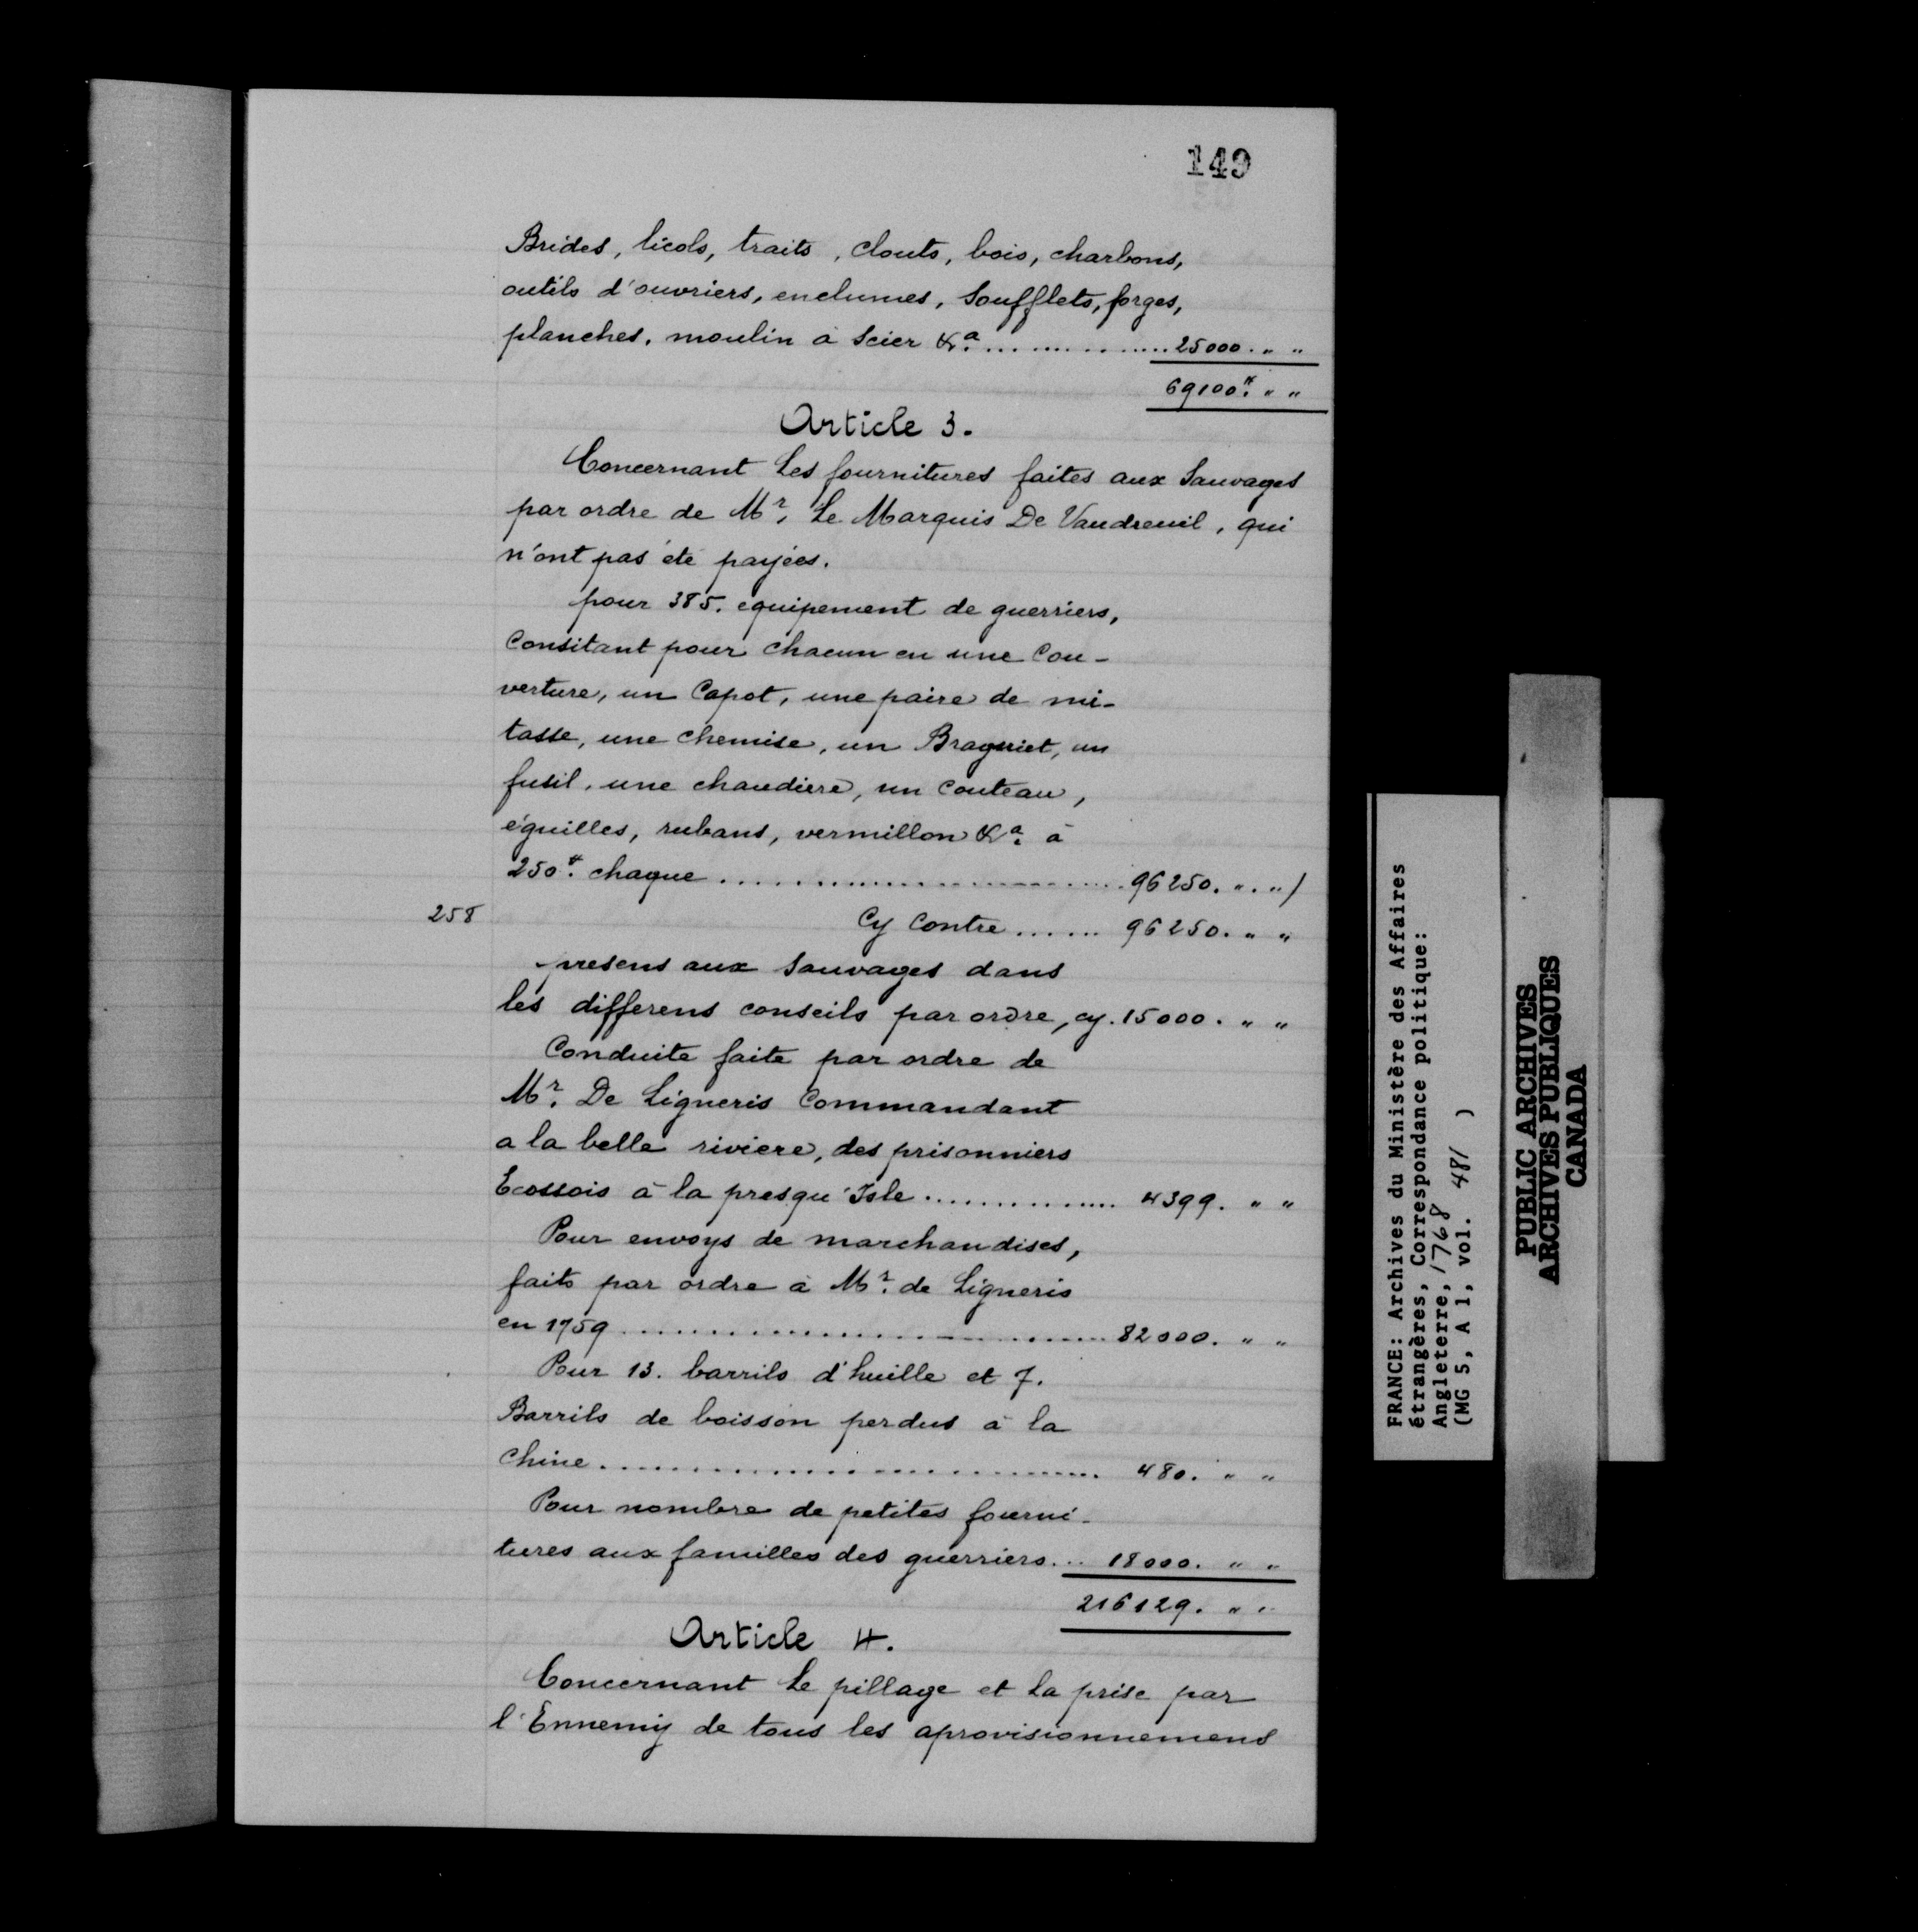 149
Brides, licols, traits, clouts, bois, charbons,
outils d'ouvriers, enclumes, Soufflets, forges,
planches, moulin à Scier &ª. .................. 25000. " "
69100#. " "
Article 3.
Concernant Les fournitures faites aux Sauvages
par ordre de Mr. Le Marquis De Vaudreuil, qui
n'ont pas été payées.
pour 385. equipement de guerriers,
Consitant pour chacun en une Cou-
verture, un Capot, une paire de mi-
tasse, une chemise, un Braguiet, un
fusil, une chaudiere, un Couteau,
éguilles, rubans, vermillon &ª. à
250#. chaque .............................. 96250. ". ")
258
Cy Contre ...... 96250. " "
presens aux Sauvages dans
les differens conseils par ordre, cy. 15000. " "
Conduite faite par ordre de
Mr. De Ligneris Commandant
a la belle riviere, des prisonniers
Ecossois à la presqu'Isle ............... 4399. " "
Pour envoys de marchandises,
faits par ordre à Mr. de Ligneris
en 1759 .............................. 82000. " "
Pour 13. barrils d'huille et 7.
Barrils de boisson perdus à la
Chine .............................. 480. " "
Pour nombre de petites fourni-
tures aux familles des guerriers... 18000. " "
216129. " "
Article 4.
Concernant Le pillage et La prise par
l'Ennemy de tous les aprovisionnemens
FRANCE: Archives du Ministère des Affaires
étrangères, Correspondance politique:
Angleterre, 1768
(MG 5, A 1, vol. 481 )
PUBLIC ARCHIVES
ARCHIVES PUBLIQUES
CANADA